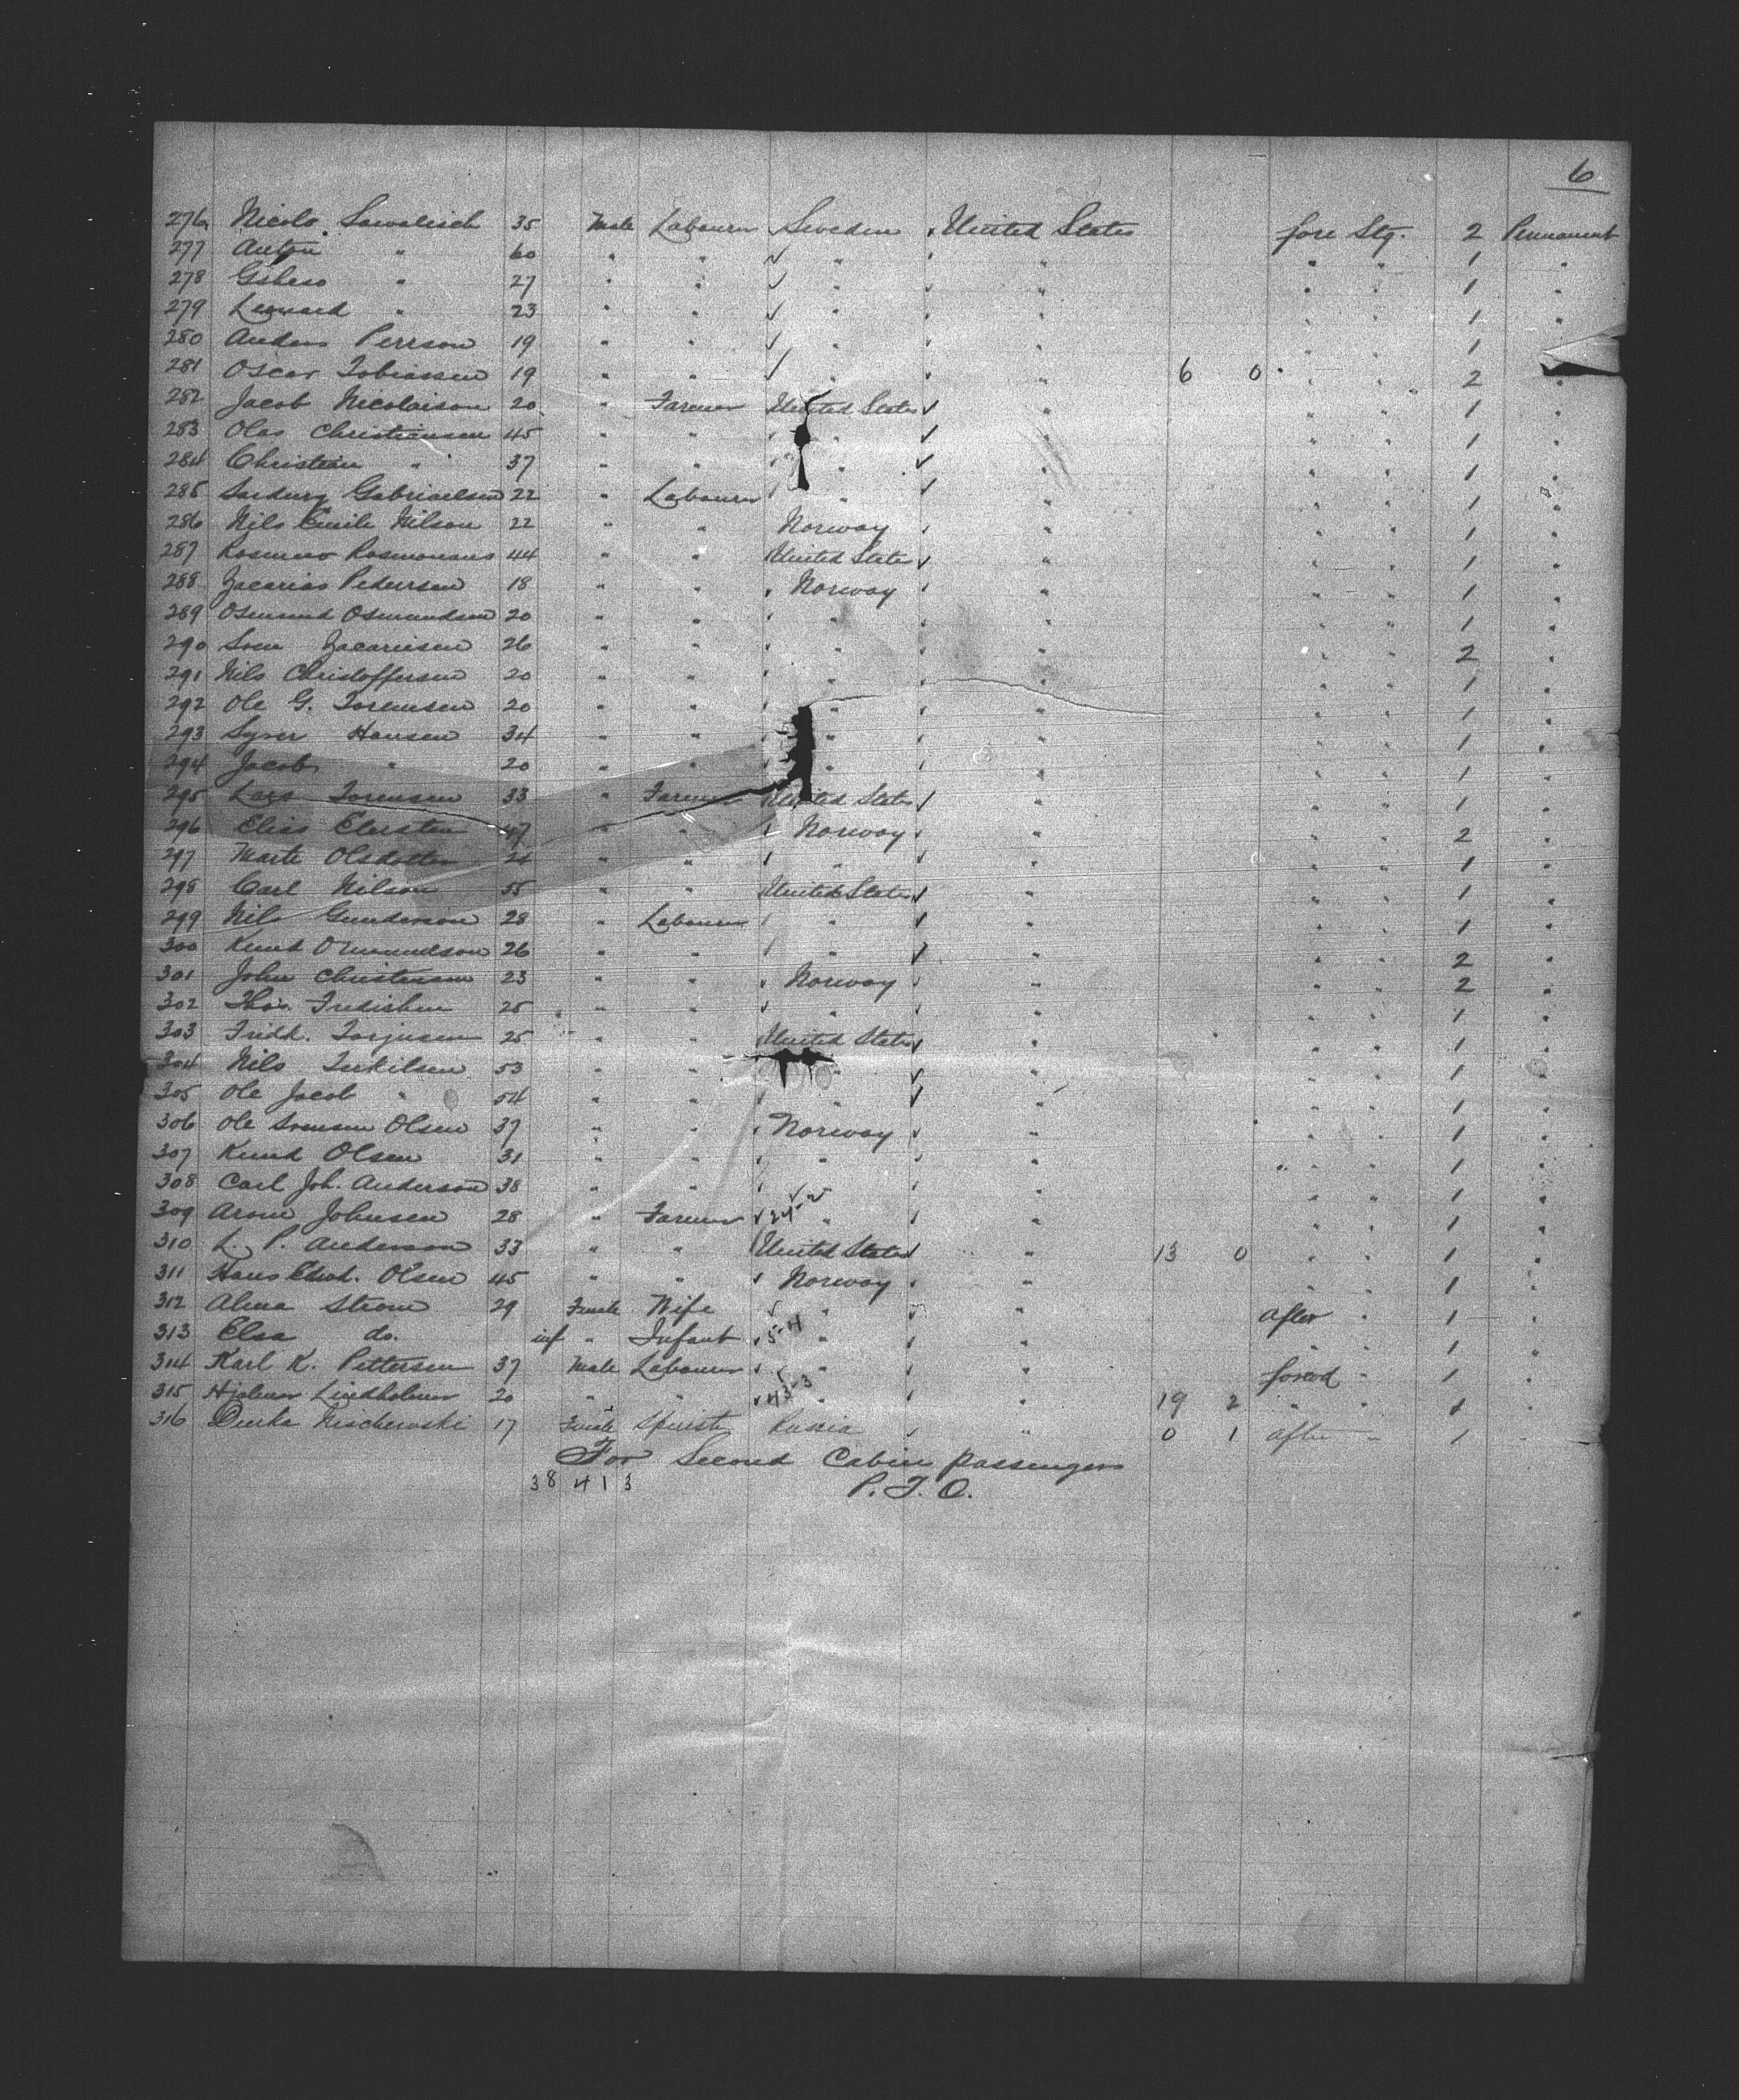 6
276 Nicolo 35 Male Labourer Sweden United States fore Stg. 2 Permanent
277 Anton " 60 " " " " " " 1 "
278 " 27 " " " " " " 1 "
279 Leonard " 23 " " " " " " 1 "
280 Anders Persson 19 " " " " " " 1
281 Oscar Tobiassen 19 " " " " 6 0 " " 2 "
282 Jacob Nicolaison 20 " Farmer United States " " " 1 "
283 Olas Christiansen 45 " " " " " " 1 "
284 Christian " 37 " " " " " " 1 "
285 Gabrielsen 22 " Labourer " " " " 1 "
286 Nils Emile Nilson 22 " " Norway " " " 1 "
287 44 " " United States " " " 1 "
288 Zacarias Pedersen 18 " " Norway " " " 1 "
289 Osmund Osmundsen 20 " " " " " " 1 "
290 Sven Zacariesen 26 " " " " " " 2 "
291 Nils Christoffersen 20 " " " " " " 1 "
292 Ole G. Torensen 20 " " " " " " 1 "
293 Syver Hansen 34 " " " " " " 1 "
294 Jacob " 20 " " " " " " 1 "
295 Lars Torensen 33 " Farmer United States " " " 1 "
296 Elias 47 " " Norway " " " 2 "
297 Marte Olsdotter 21 " " " " " " 1 "
298 Carl Nilson 55 " " United States " " " 1 "
299 Nils Gunderson 28 " Labourer " " " " 1 "
300 Knud 26 " " " " " " 2 "
301 John Christensen 23 " " Norway " " " 2 "
302 Thos. 25 " " " " " " 1 "
303 Fridk. Torjusen 25 " " United States " " " 1 "
304 Nils Terkilsen 53 " " " " " " 1 "
305 Ole Jacob " 54 " " " " " " 1 "
306 Ole Svensen Olsen 37 " " Norway " " " 1 "
307 Knud Olsen 31 " " " " " " 1 "
308 Carl Joh. Anderson 38 " " " " " " 1 "
309 Johnsen 28 " Farmer " " " " 1 "
310 L. P. Anderson 33 " " United States " 13 0 " " 1 "
311 Hans Olsen 45 " " Norway " " " 1 "
312 Alma Strom 29 Female Wife " " After " 1 "
313 Elsa do. inf " Infant " " " " 1 "
314 Karl K. Pettersen 37 Male Labourer " " forwd " 1 "
315 Hjalmar Lindholmer 20 " " " " 19 2 " " 1 "
316 17 Female Spinster Russia " 0 1 After " 1 "
For Second Cabin passengers
38 4 1 3 P.T.O.